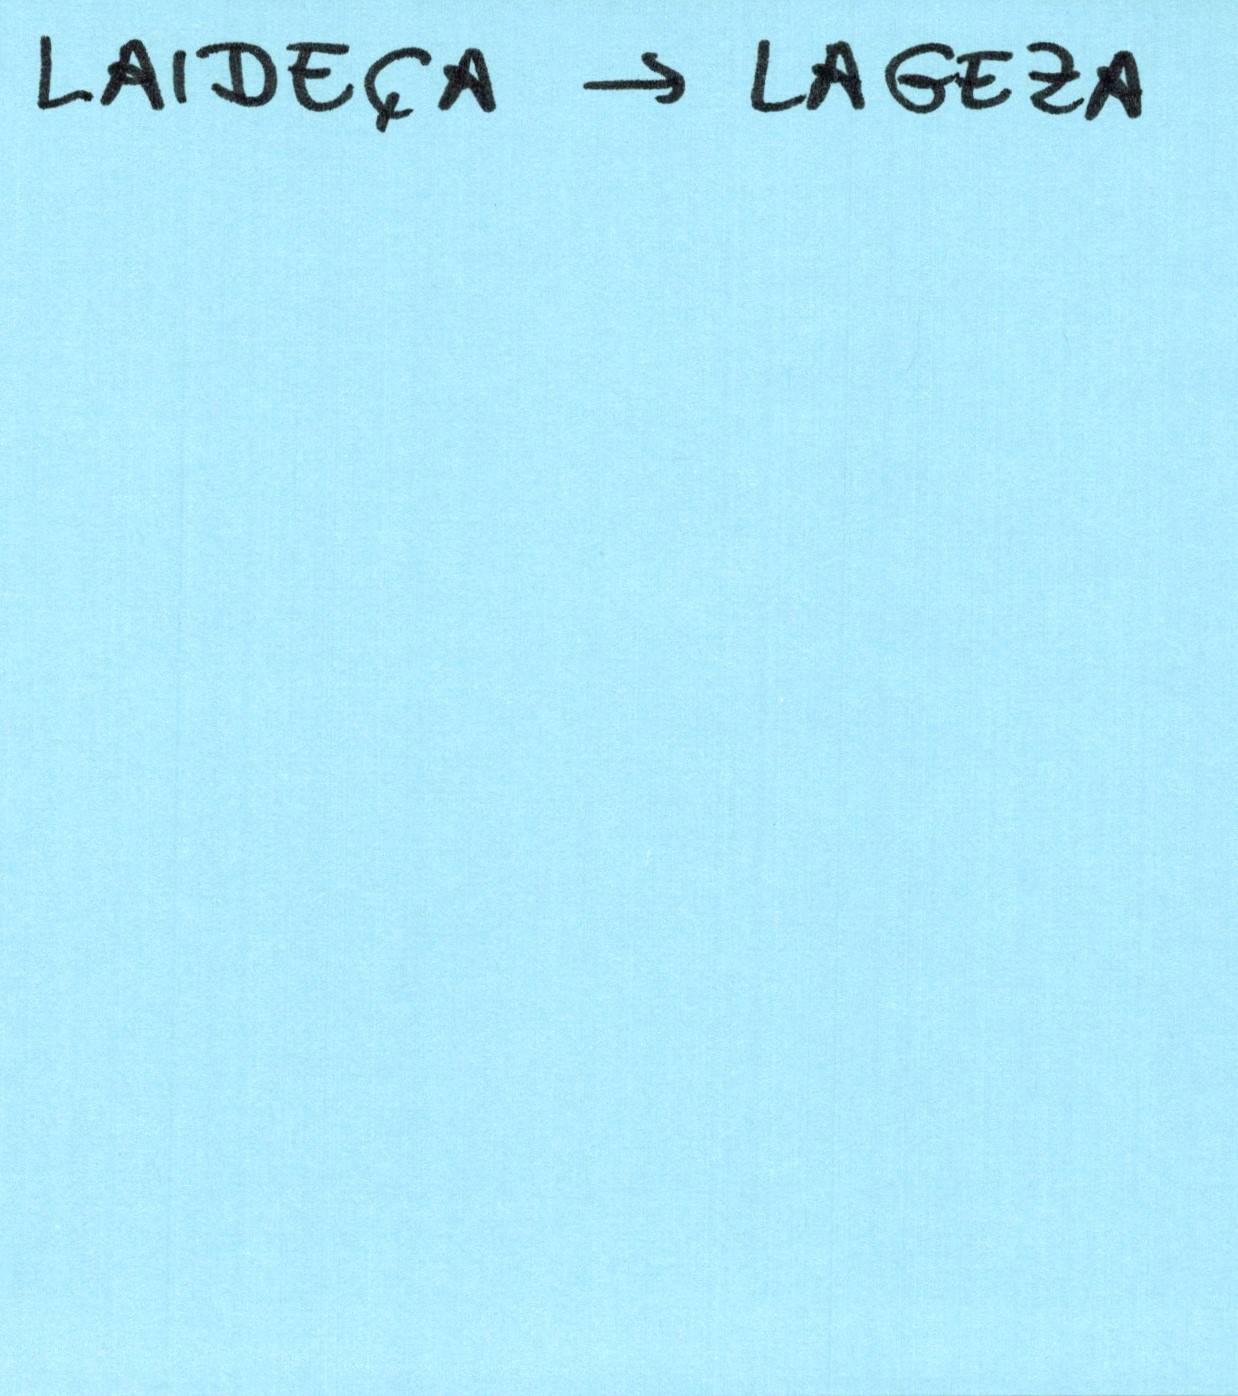 LAIDEÇA → LAGEZA